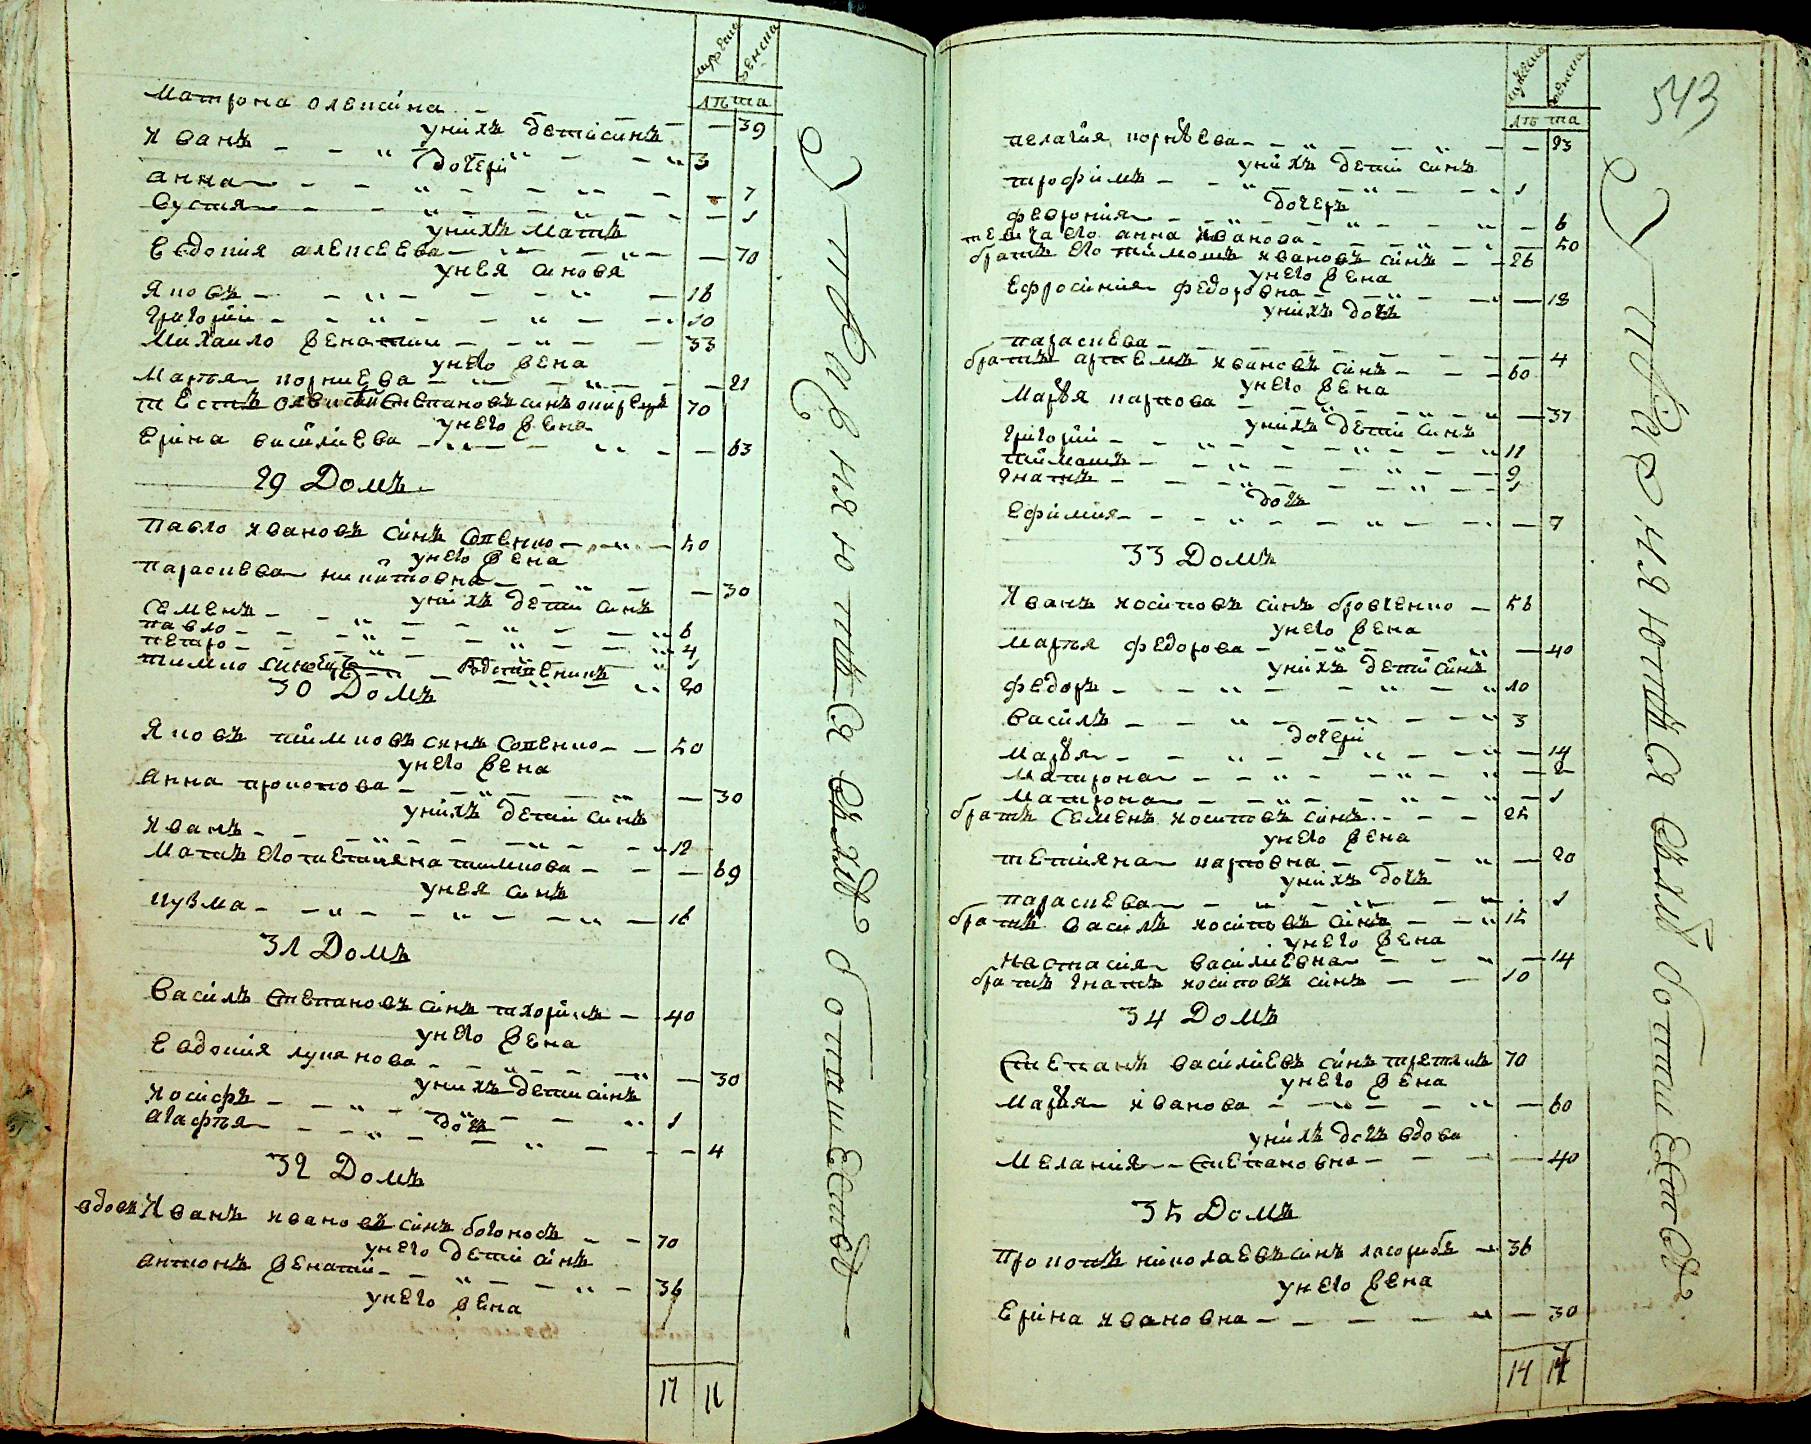 мужеска женска
лѣта
Матрона олексіина — 39
у нихъ дети синъ
Иванъ — 3
дочері
анна — 7
Вустя — 1
у нихъ мать
Евдокия алексеева — 70
у нея синовя
Яковъ — 18
Григорій — 10
Михаило женатии — 33
у него жена
Марія корниева — 21
степановъ синъ 70
у него жена
Еріна василиева — 63
29 Домъ
Павло ивановъ синъ сопенко — 50
у него жена
Параскева никитовна — 30
у нихъ дети синъ
Семенъ — 6
павло — 4
петро — 1
тимко 20
30 Домъ
Яковъ тимковъ синъ сопенко — 50
у него жена
Анна прокопова — 30
у нихъ дети синъ
Иванъ — 12
Мать его тетияна тимкова — 69
у нея синъ
кузма — 16
31 Домъ
Василь степановъ синъ — 40
у него жена
Евдокия лукянова — 30
у нихъ дети синъ
иосифъ — 1
дочь
агафья — 4
32 Домъ
вдовъ Иванъ ивановъ синъ богоносъ — 70
у него дети синъ
антонъ женатий — 36
у него жена
17 11
543
лѣта
пелагія корнѣева — 23
у нихъ дети синъ
трофимъ — 1
дочеръ
феврония — 6
анна иванова — 50
братъ его тимошъ ивановъ синъ — 26
у него жена
Ефросиния федоровна — 18
у нихъ дочь
параскева — 4
братъ артемъ ивановъ синъ — 60
у него жена
Марѳя карпова — 37
у нихъ дети синъ
Григорій — 11
тимошъ — 9
Гнатъ — 1
дочь
Ефимия — 7
33 Домъ
Иванъ иосиповъ синъ бровченко — 56
у него жена
Марья федорова — 40
у нихъ дети синъ
федоръ — 10
василь — 3
дочері
Марѳя — 14
Матрона — 2
Матрона — 1
братъ семенъ иосиповъ синъ — 25
у него жена
тетияна карповна — 20
у нихъ дочь
параскева — 1
братъ василь иосиповъ синъ — 15
у него жена
Настасия василиевна — 14
братъ Гнатъ иосиповъ синъ — 10
34 Домъ
Степанъ василиевъ синъ третякъ 70
у него жена
Марѳя иванова — 60
у нихъ дочь вдова
Мелания степановна — 40
35 Домъ
Прокопъ николаевъ синъ — 36
у него жена
Еріна ивановна — 30
14 14